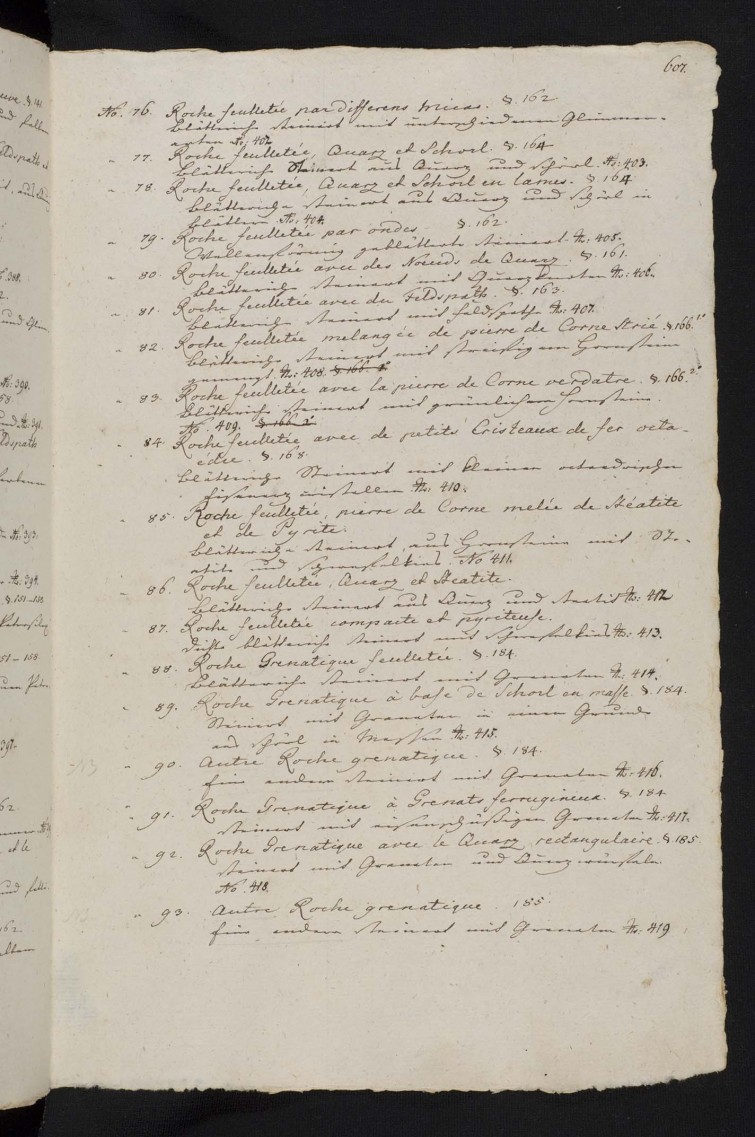 607.
No. 76. Roche feulletée par differens micas. §. 162
blätteriche steinart mit unterschiedenen Glimmer-
arten No: 402
" 77. Roche feulletée, Quarz et Schorl. §. 164
blätteriche Steinart aus Quarz und schörl. No: 403.
" 78. Roche feulletée, Quarz et Schorl en lames. §. 164
blätteriche steinart aus Quarz und schörl in
blättern No. 404.
" 79. Roche feulletée par ondes §. 162.
Wellenförmig geblätterte steinart No. 405.
" 80. Roche feulletée avec des Noeuds de Quarz. §. 161.
blätteriche steinart mit Quarzknoten No: 406.
" 81. Roche feulletée avec du Feldspath. §. 163.
blätteriche steinart mit feldspath No: 407.
" 82. Roche feulletée melangée de pierre de Corne strié. §. 166. 1º
blätteriche steinart mit streifigem Hornstein
gemengt. No: 408. §. 166. 2.
" 83. Roche feulletée avec la pierre de Corne verdatre. §. 166. 2º
blätteriche steinart mit grünlichem hornstein.
No. 409. §. 166. 2º
" 84. Roche feulletée avec de petits Cristeaux de fer octa-
édre. §. 168.
blätteriche Steinart mit kleinen octaedrischen
Eisenerz cristallen No. 410.
" 85. Roche feulletée, pierre de Corne melée de Stéatite
et de Pyrite.
blätteriche steinart, aus Hornstein mit Ste-
atit und schwefelkies. No 411.
" 86. Roche feulletée, Quarz et Steatite.
blätteriche steinart aus Quarz und steatit No: 412
87. Roche feulletée compacte et pyriteuse.
dichte blätteriche steinart mit schwefelkies No: 413.
" 88. Roche Grenatique feulletée. §. 184.
blätteriche steinart mit Granaten No: 414.
" 89. Roche Grenatique à base de Schorl en masse. §. 184.
Steinart mit Granaten in einem Grunde
aus schörl in Massen No: 415.
" 90. Autre Roche grenatique. §. 184.
Eine andere steinart mit Granaten No: 416.
" 91. Roche Grenatique à Grenats ferrugineux. §. 184
steinart mit eisenschüssigen Granaten No: 417.
" 92. Roche Grenatique avec le Quarz rectangulaire. §. 185.
steinart mit Granaten und Quarzwürfeln.
No. 418.
" 93. Autre Roche grenatique. 185.
Eine andere steinart mit Granaten No: 419